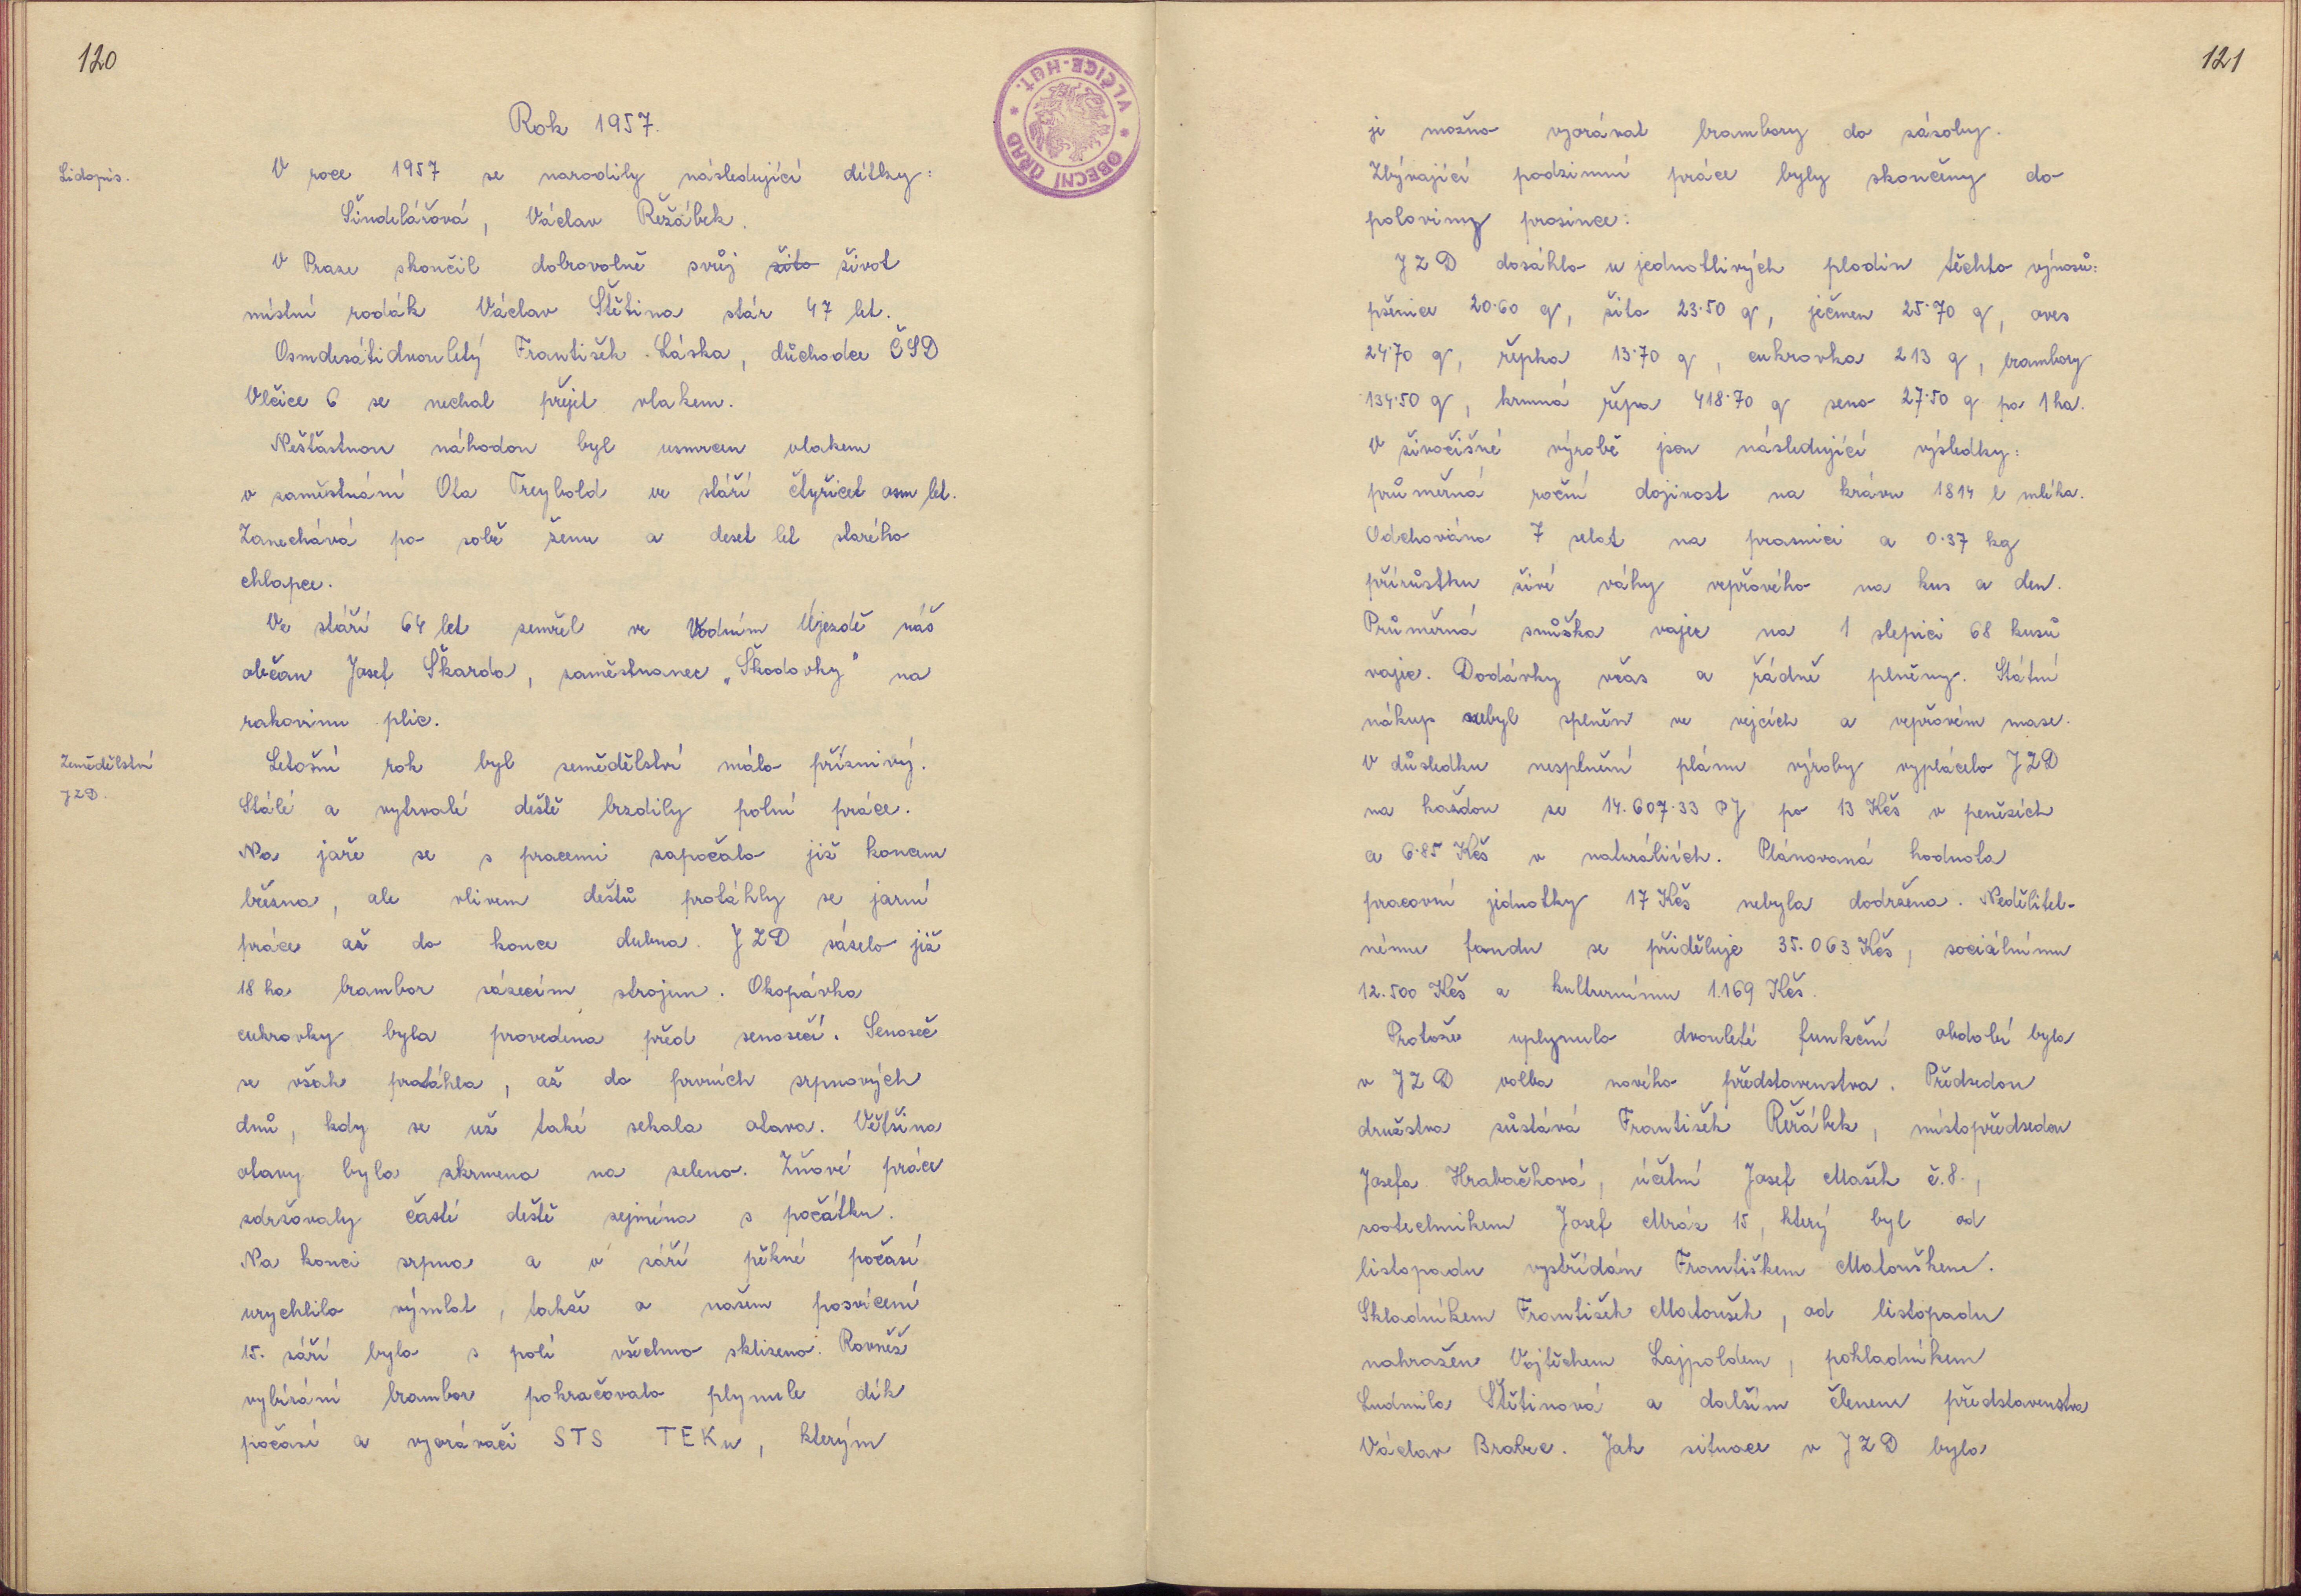 120
Rok 1957.
Lidopis.
V roce 1957 se narodily následující dítky:
Šindelářová, Václav Řežábek.
V Praze skončil dobrovolně svůj žito život
místní rodák Václav Štětina stár 47 let.
Osmdesátidvouletý František Láska, důchodce ČSD
Vlčice 6 se nechal přejet vlakem.
Nešťastnou náhodou byl usmrcen vlakem
v zaměstnání Ota Treybold ve stáří čtyřicet osm let.
Zanechává po sobě ženu a deset let starého
chlapce.
Ve stáří 64 let zemřel ve Vodním Újezdě náš
občan Josef Škarda, zaměstnanec „Škodovky" na
rakovinu plic.
Zemědělství
JZD.
Letošní rok byl zemědělství málo příznivý.
Stálé a vytrvalé deště brzdily polní práce.
Na jaře se s pracemi započalo již koncem
března, ale vlivem dešťů protáhly se jarní
práce až do konce dubna. JZD sázelo již
18 ha brambor sázecím strojem. Okopávka
cukrovky byla provedena před senosečí. Senoseč
se však protáhla, až do prvních srpnových
dnů, kdy se už také sekala otava. Většina
otavy byla zkrmena na zeleno. Žňové práce
zdržovaly časté deště zejména s počátku.
Na konci srpna a v září pěkné počasí
urychlilo výmlat, takže o našem posvícení
15. září bylo s polí všechno sklizeno. Rovněž
vybírání brambor pokračovalo plynule dík
počasí a vyorávači STS TEKu, kterým
OBECNÍ ÚŘAD * VLČICE-HUT. *
121
je možno vyorávat brambory do zásoby.
Zbývající podzimní práce byly skončeny do
poloviny prosince.
JZD dosáhlo u jednotlivých plodin těchto výnosů:
pšenice 20·60 q, žito 23·50 q, ječmen 25·70 q, oves
24·70 q, řepka 13·70 q, cukrovka 213 q, brambory
134·50 q, krmná řepa 418·70 q seno 27·50 q po 1 ha.
V živočišné výrobě jsou následující výsledky:
průměrná roční dojivost na krávu 1814 l mléka.
Odchováno 7 selat na prasnici a 0·37 kg
přírůstku živé váhy vepřového na kus a den.
Průměrná snůška vajec na 1 slepici 68 kusů
vajec. Dodávky včas a řádně plněny. Státní
nákup nebyl splněn ve vejcích a vepřovém mase.
V důsledku nesplnění plánu výroby vyplácelo JZD
na každou ze 14.607·33 PJ po 13 Kčs v penězích
a 6·85 Kčs v naturáliích. Plánovaná hodnota
pracovní jednotky 17 Kčs nebyla dodržena. Nedělitel-
nému fondu se přiděluje 35.063 Kčs, sociálnímu
12.500 Kčs a kulturnímu 1.169 Kčs.
Protože uplynulo dvouleté funkční období byla
v JZD volba nového představenstva. Předsedou
družstva zůstává František Řežábek, místopředsedou
Josefa Hrabačková, účetní Josef Mašek č.8.,
zootechnikem Josef Mráz 15, který byl od
listopadu vystřídán Františkem Matouškem.
Skladníkem František Matoušek, od listopadu
nahražen Vojtěchem Lajpoldem, pokladníkem
Ludmila Štětinová a dalším členem představenstva
Václav Brabec. Jak situace v JZD byla